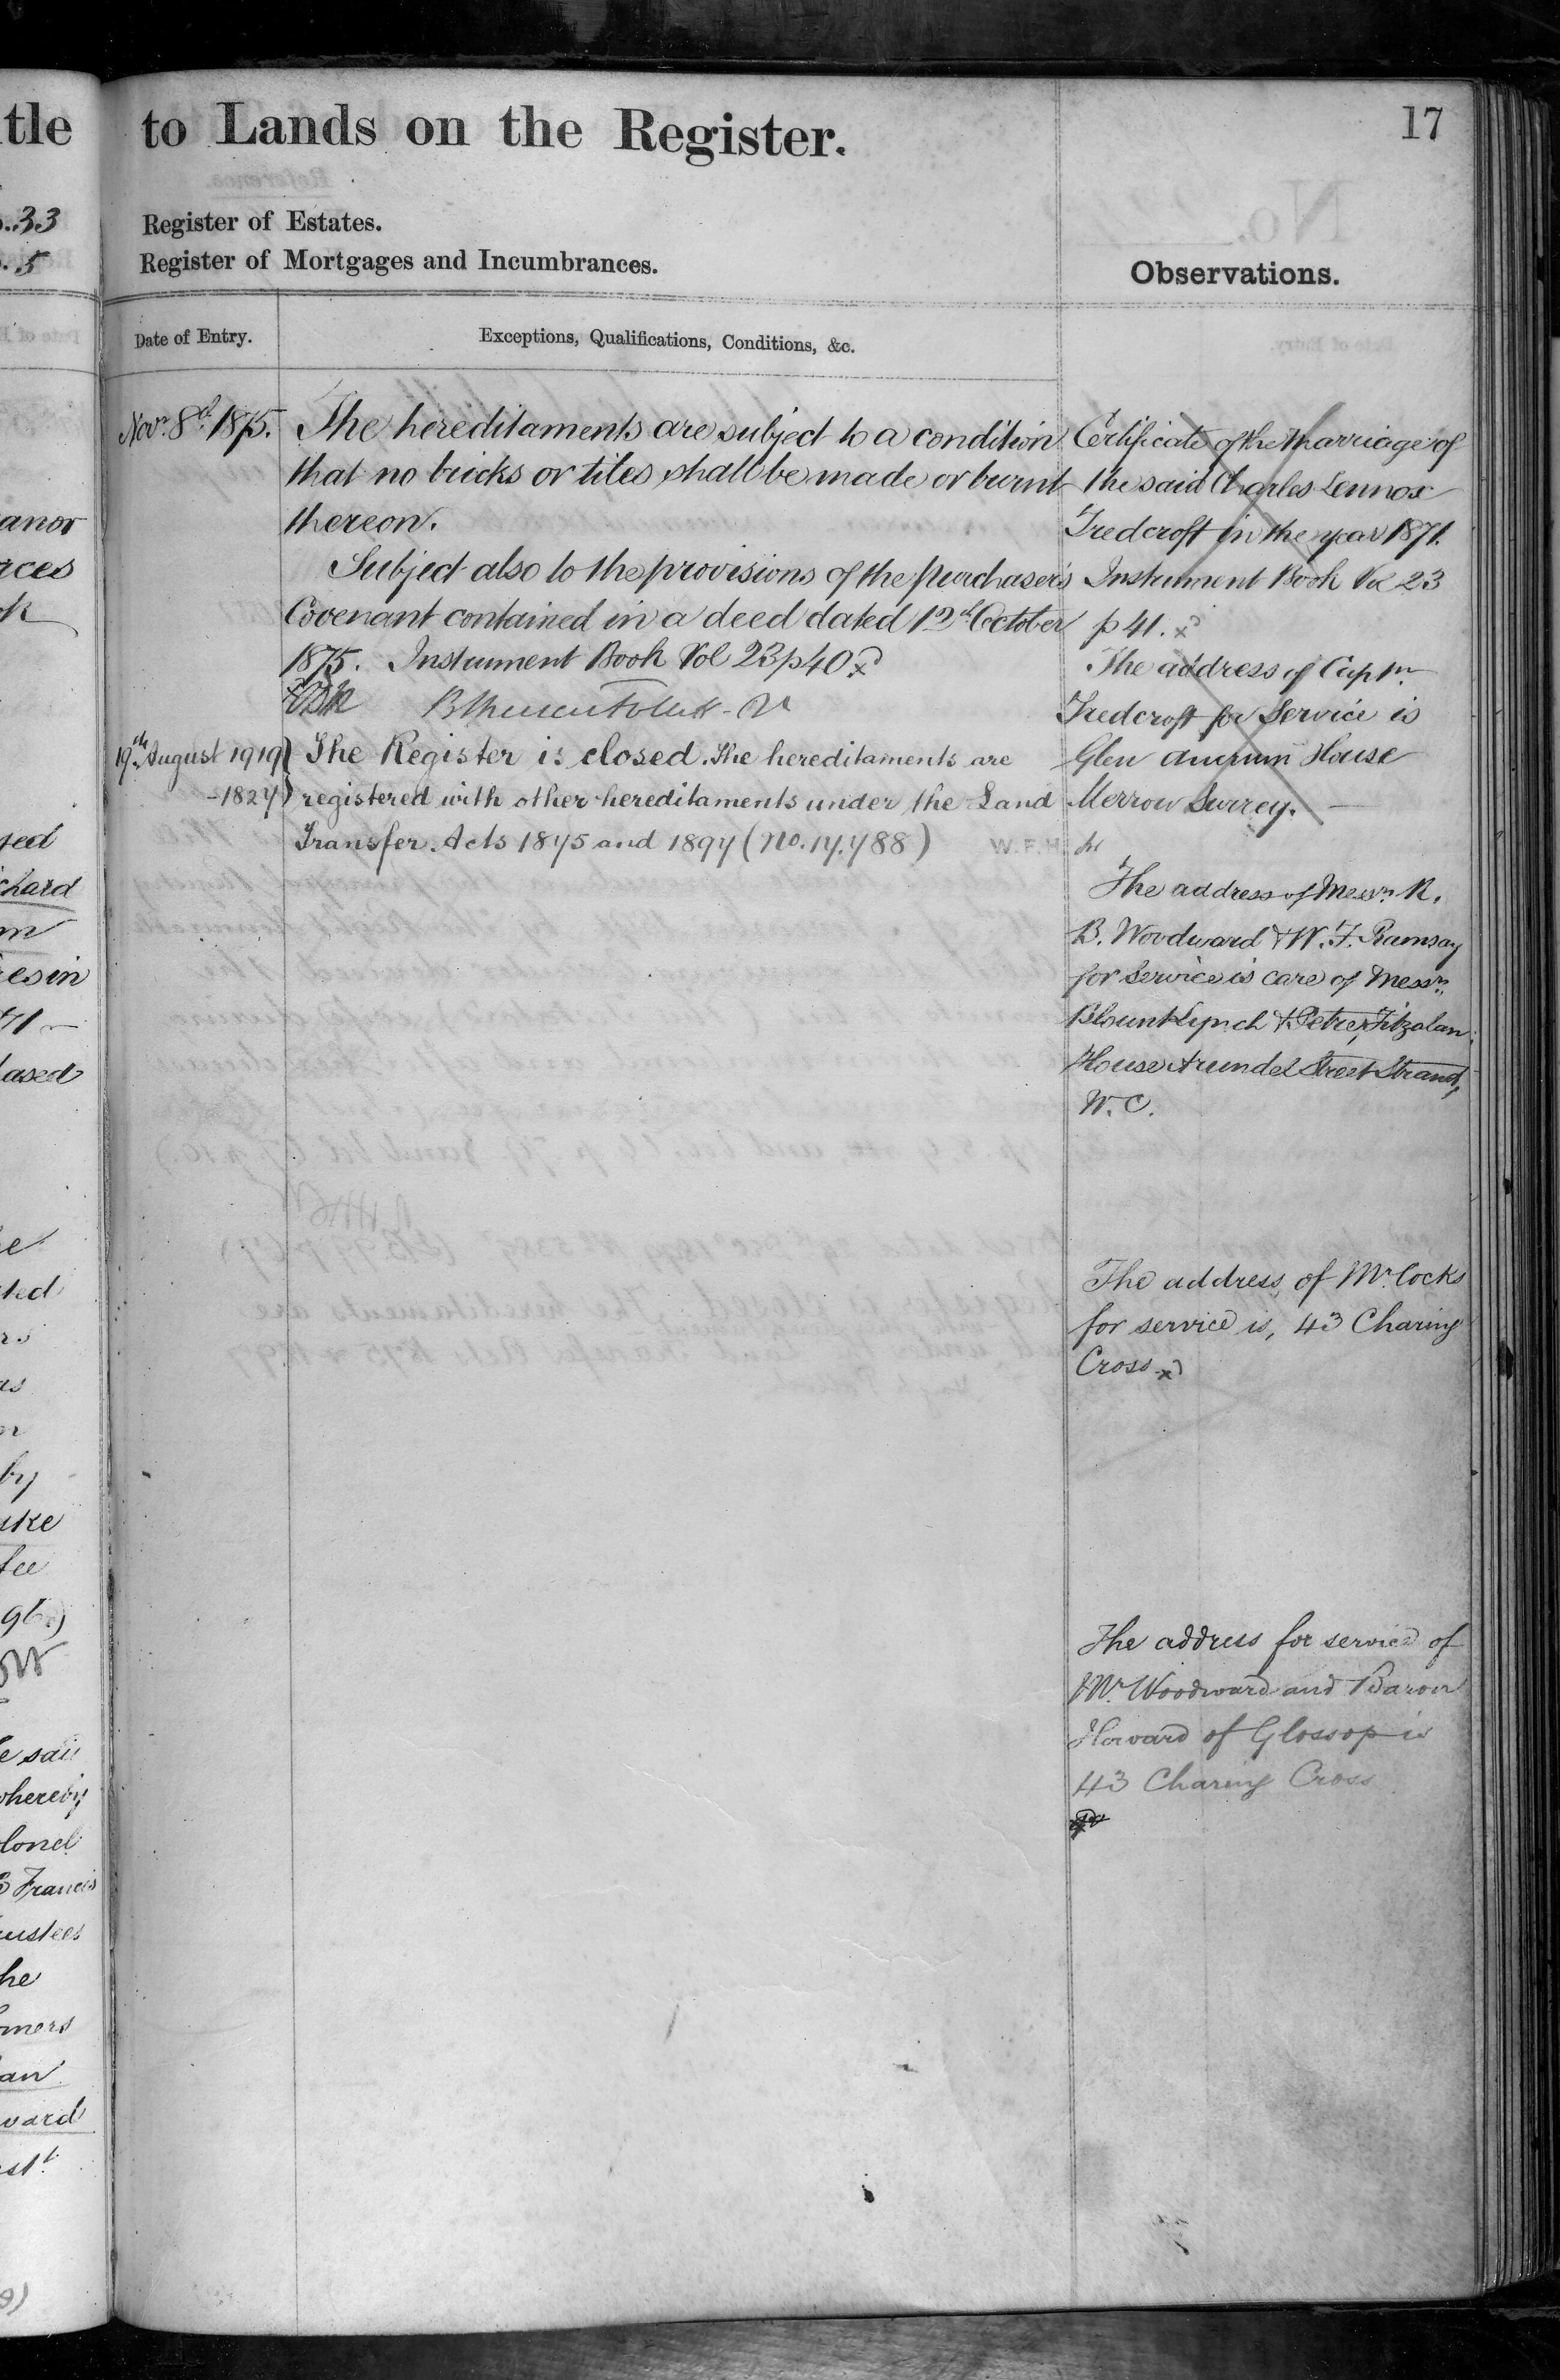 tle to Lands on the Register.
17
33
5
Register of Estates.
Register of Mortgages and Incumbrances.
Observations.
Date of Entry.
Exceptions, Qualifications, Conditions, &c.
Novr. 8th. 1875.
The hereditaments are subject to a condition
that no bricks or tiles shall be made or burnt
thereon.
Subject also to the provisions of the purchaser's
Covenant contained in a deed dated 12th October
1875. Instrument Book Vol 23 p 40
19th August 1919
-1827
The Register is closed. The hereditaments are
registered with other hereditaments under the Land
Transfer Acts 1875 and 1897 (No. 17.788)
W.F.H
Certificate of the Marriage of
the said Charles Lennox
Tredcroft in the year 1871.
Instrument Book Vol 23
p 41.
The address of Captn.
Tredcroft for Service is
Glen House
Merrow Surrey.
The address of Messrs. R.
B. Woodward & W. F. Ramsay
for Service is care of Messrs.
Blount Lynch & Petre, Fitzalan
House Arundel Street Strand,
W. C.
The address of Mr. Cocks
for service is, 43 Charing
Cross
The address for service of
Mr. Woodward and Baron
Howard of Glossop is
43 Charing Cross
anor
chard
esin
ased
ted
as
by
uke
e said
whereby
lonel
Francis
rustees
he
mers
an
ward